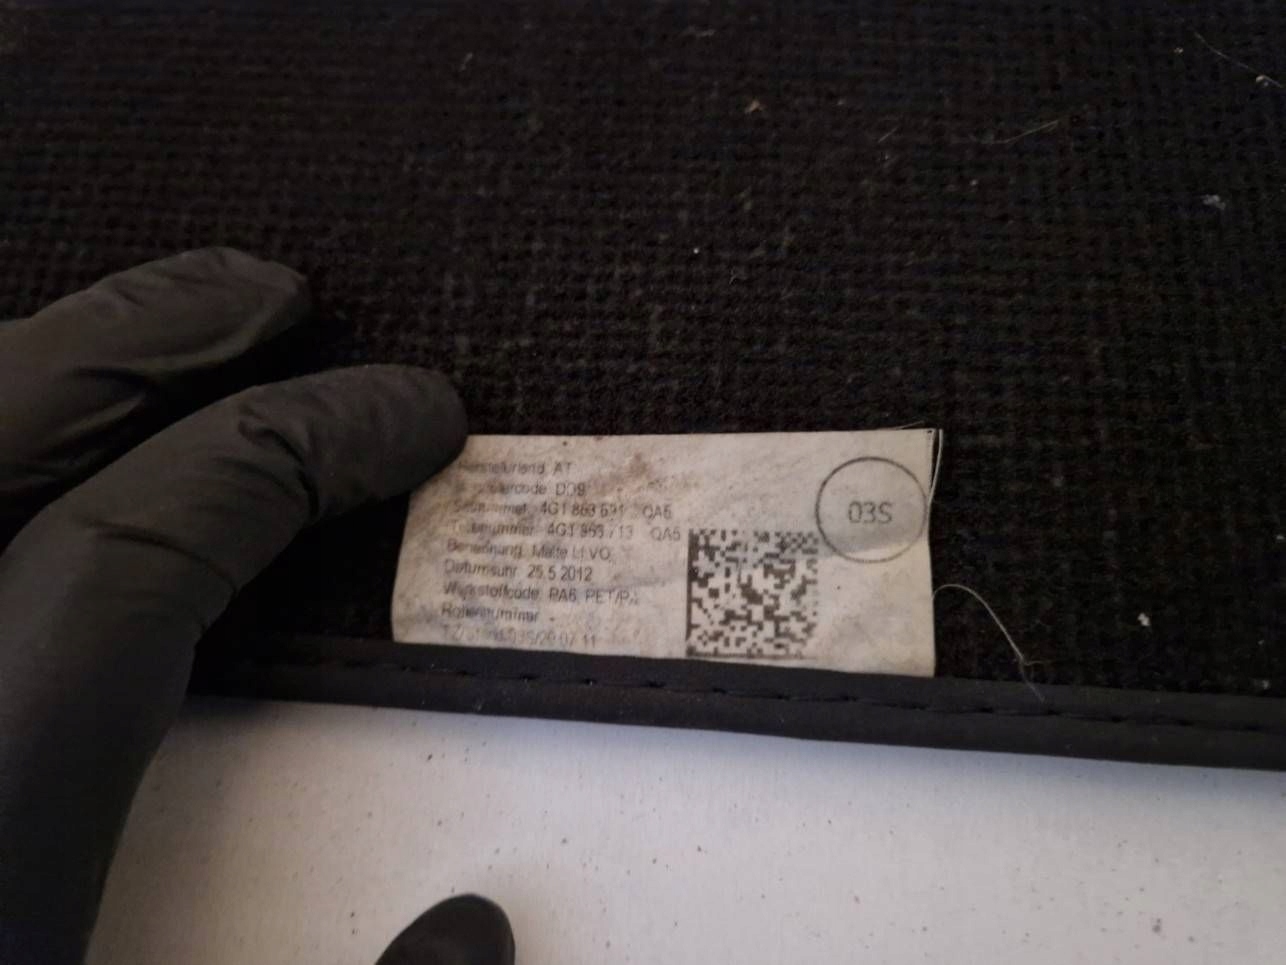 Herstellerland AT
code D09
4G1 863 691 QA5
Teilenummer 4G1 863 713 QA5
Benennung Matte LI VO
Datumsuhr 25.5.2012
Werkstoffcode PA6, PET/P
Rollennummer -
03S/20.07.11
03S